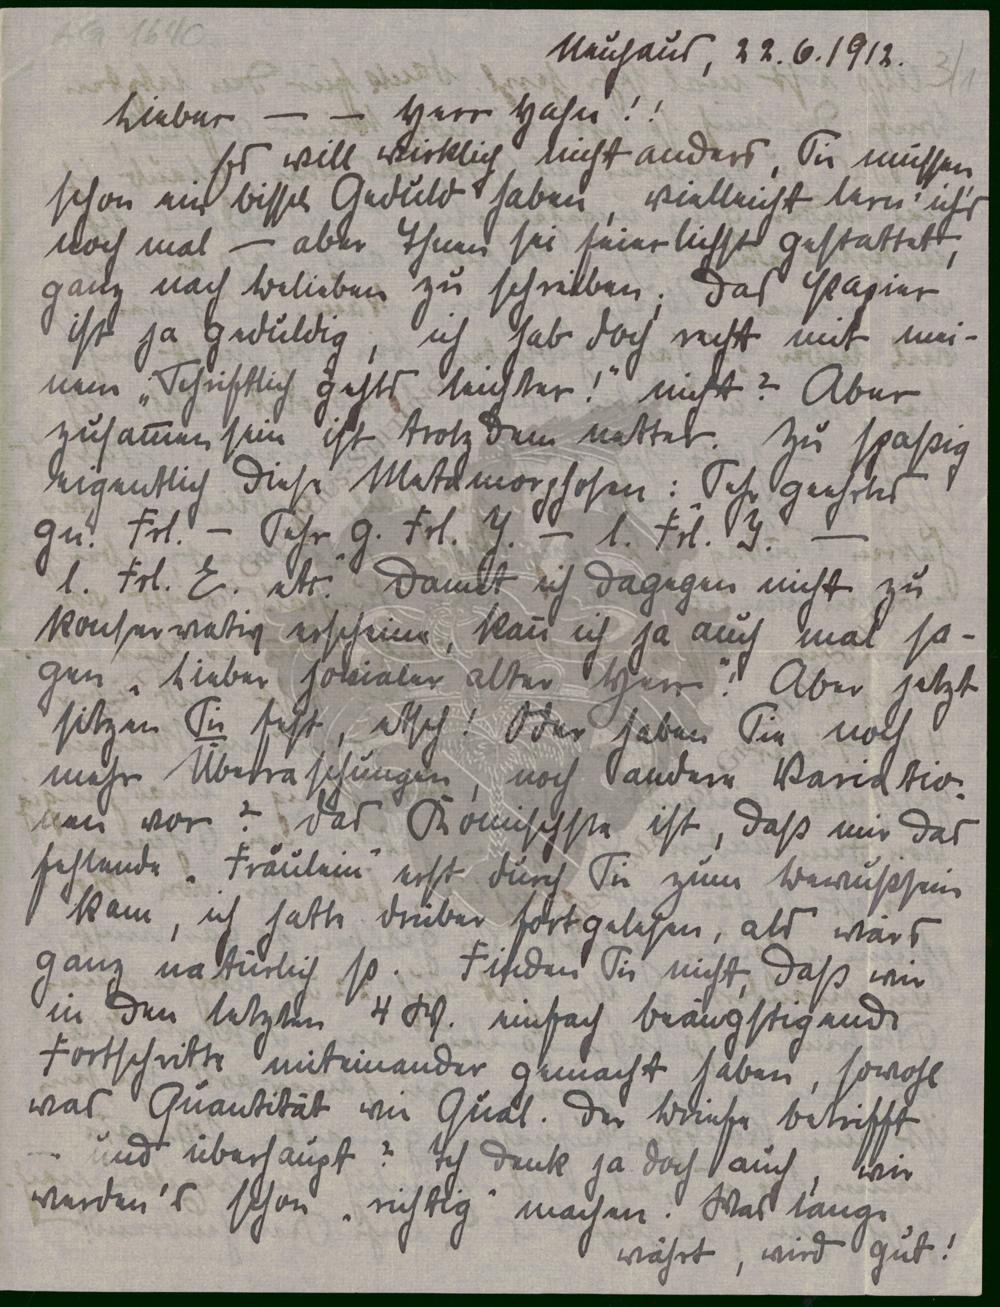 Neuhaus, 22.6.1912.
Lieber — — Herr Hahn!!
Es will wirklich nicht anders, Sie müssen
schon ein bissel Geduld haben, vielleicht lern' ich's
noch mal — aber Ihnen sei feierlichst gestattet,
ganz nach Belieben zu schreiben. Das Papier
ist ja geduldig, ich hab doch recht mit mei-
nem „Schriftlich gehts leichter!" nicht? Aber
zusam̅en sein ist trotzdem netter. Zu spaßig
eigentlich diese Metamorphosen: Sehr geehrtes
gn. Frl. — Sehr g. Frl. J. — l. Frl. J. —
l. Frl. E. etc. Damit ich dagegen nicht zu
konservativ erscheine, kan̅ ich ja auch mal sa-
gen „Lieber sozialer alter Herr"! Aber jetzt
sitzen Sie fest, etsch! Oder haben Sie noch
mehr Überraschungen, noch andere Variatio-
nen vor? Das Komischste ist, daß mir das
fehlende „Fräulein" erst durch Sie zum Bewußtsein
kam, ich hatte drüber fortgelesen, als wärs
ganz natürlich so. Finden Sie nicht, daß wir
in den letzten 4 W. einfach beängstigende
Fortschritte miteinander gemacht haben, sowohl
was Quantität wie Qual. der Briefe betrifft
— und überhaupt? Ich denk ja doch auch, wir
werden's schon „richtig" machen. Was lange
währt, wird gut!